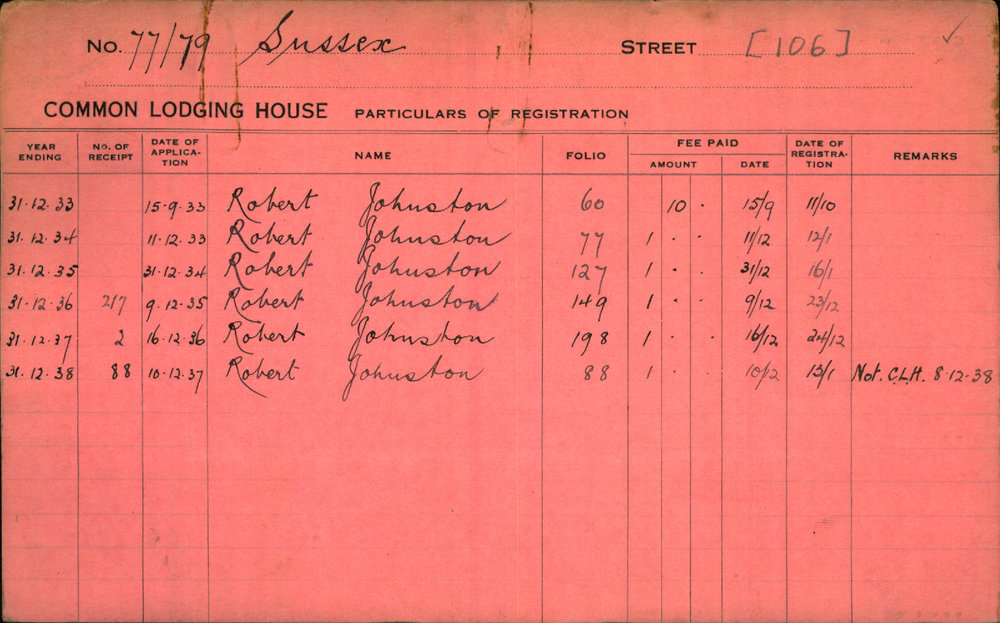 No. 77/79 Sussex STREET [106] ✓
COMMON LODGING HOUSE PARTICULARS OF REGISTRATION
YEAR ENDING No. OF RECEIPT DATE OF APPLICA- TION NAME FOLIO FEE PAID AMOUNT DATE DATE OF REGISTRA- TION REMARKS
31.12.33 15.9.33 Robert Johnston 60 10 . 15/9 11/10
31.12.34 11.12.33 Robert Johnston 77 1 . . 11/12 12/1
31.12.35 31.12.34 Robert Johnston 127 1 . . 31/12 16/1
31.12.36 217 9.12.35 Robert Johnston 149 1 . . 9/12 23/12
31.12.37 2 16.12.36 Robert Johnston 198 1 . . 16/12 24/12
31.12.38 88 10.12.37 Robert Johnston 88 1 . . 10/12 13/1 Not. C.L.H. 8.12.38